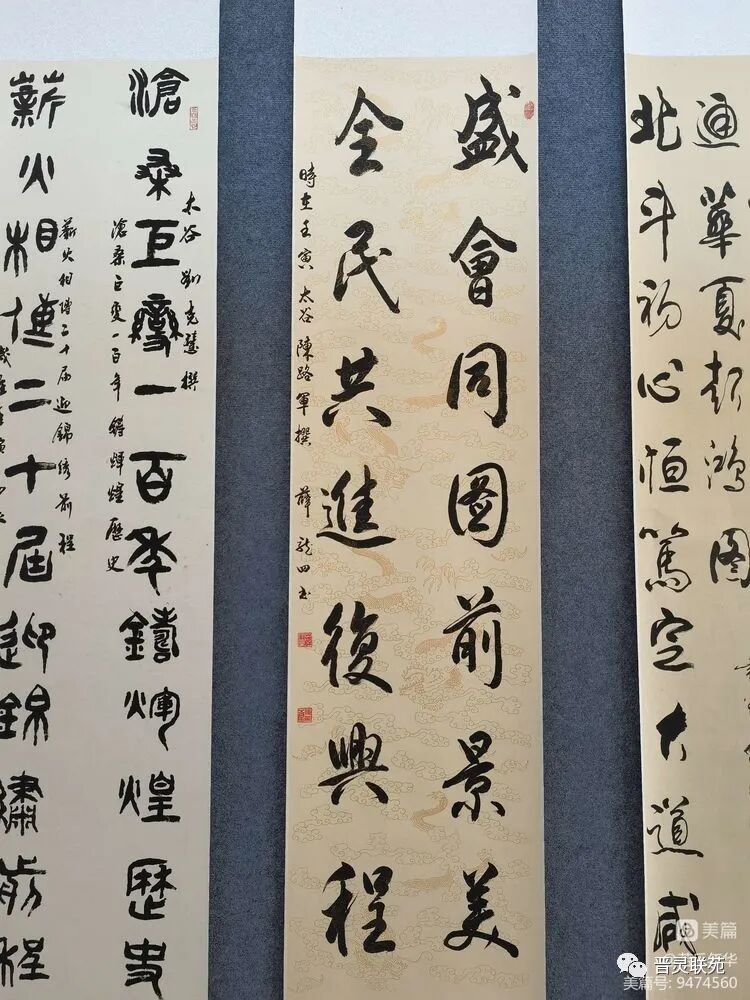 華夏鴻圖
北斗初心恒篤定大道咸
盛會同圖前景美
全民共進復興程
時在壬寅 太谷陳路軍撰 薛龍四书
太谷劉克慧撰
滄桑巨變一百年鑄輝煌歷史
滄桑巨变一百年鑄輝煌歷史
薪火相傳二十届迎錦绣前程
薪火相傳二十届迎錦繡前程
美篇
晋灵联苑
美篇号: 9474560